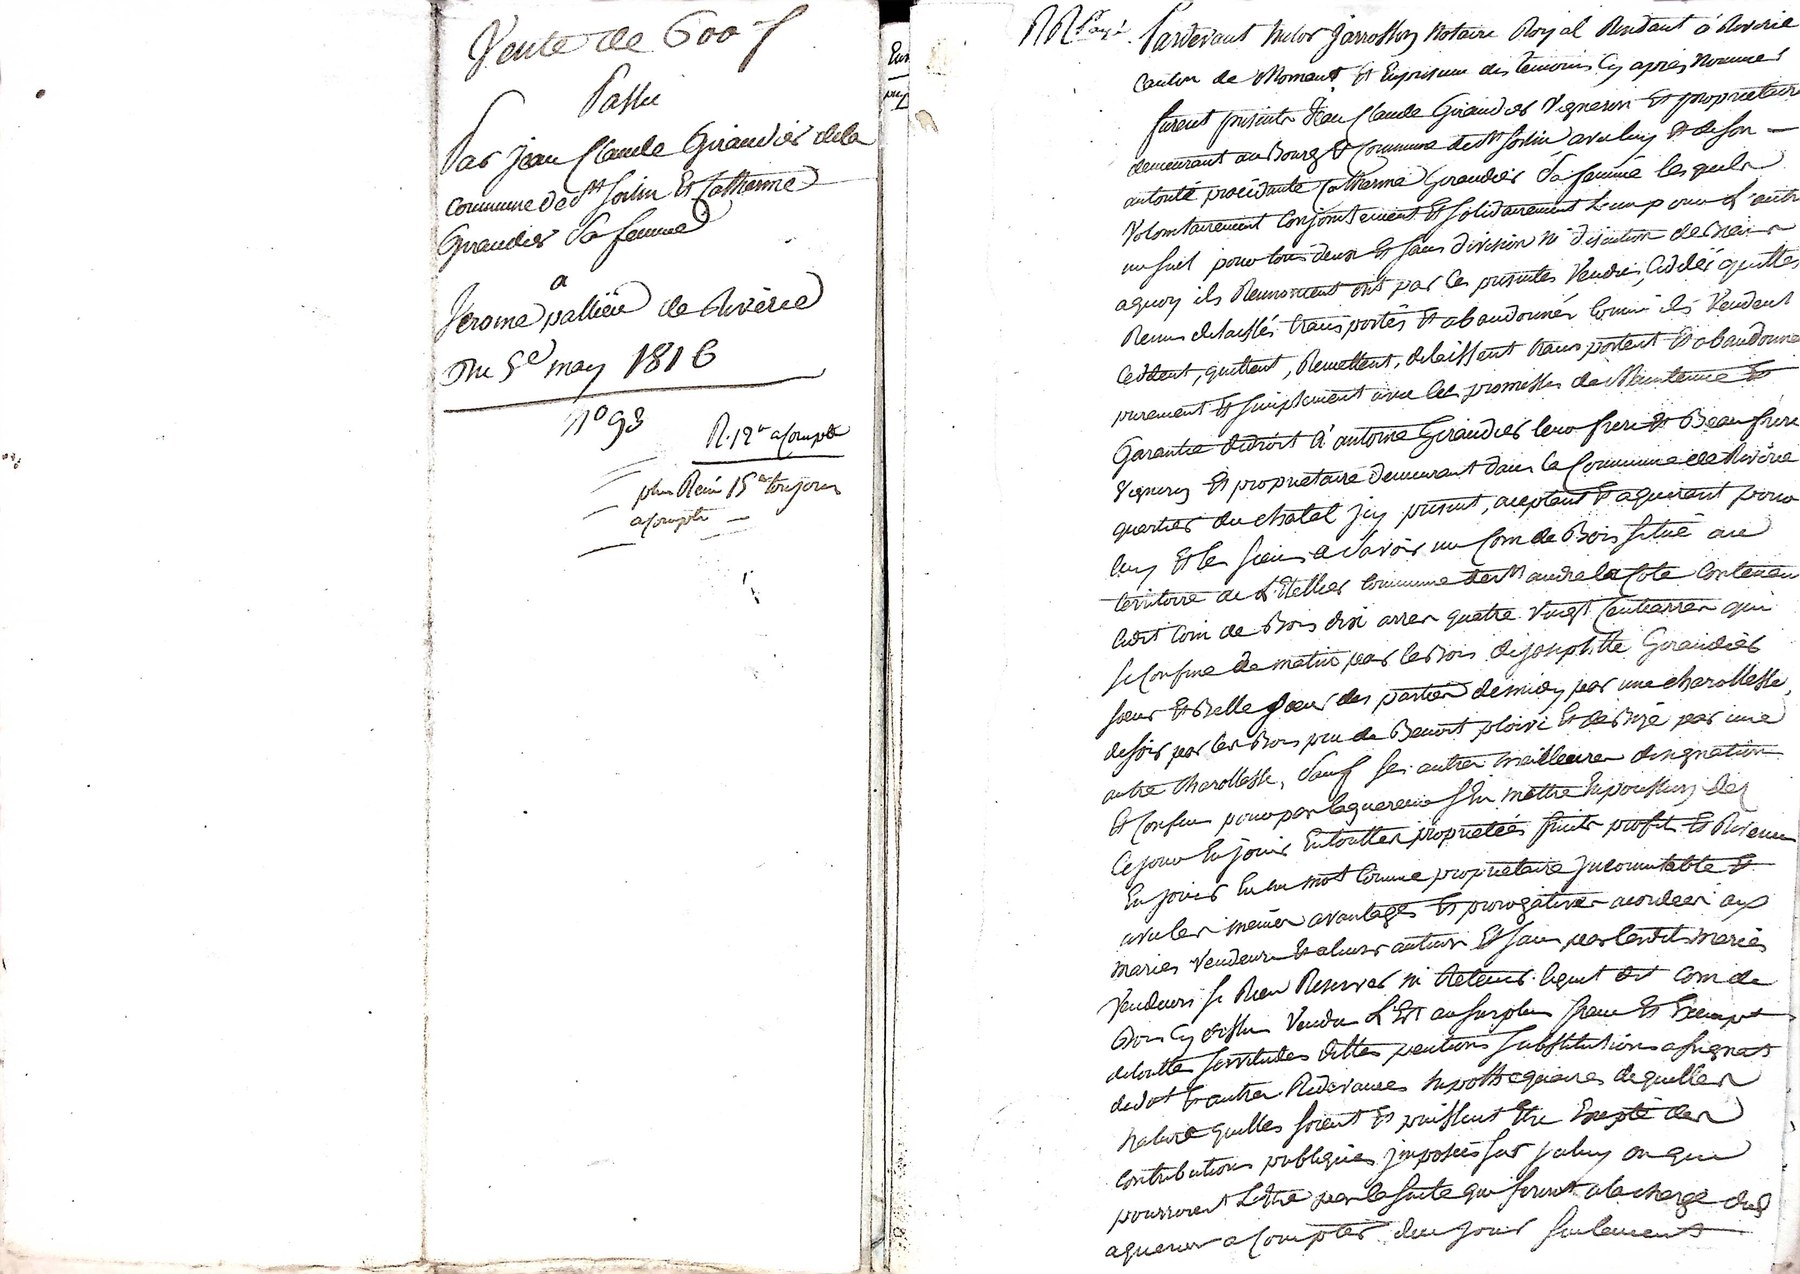 Vente de 600 f
Passée
Par jean Claude Giraudier de la
commune de St Sorlin Et Catherine
Giraudier Sa femme
a
Jerome pallière de Riverie
Du 5e may 1816
N° 93
R. 12 acompte
plus Reçu 15 toujours
acompte
Pardevant Notaire Royal Residant à Riverie
Canton de Mornant Et En presence des temoins Cy après Nommés
furent presents Jean Claude Giraudier Vigneron Et propriétaire
demeurant au Bourg Et Commune de St Sorlin avec luy Et de Son
autorité procédante Catherine Giraudier Sa femme lesquels
Volontairement Conjointement Et Solidairement L'un pour L'autre
un Seul pour tous deux Et Sans division ni discution de biens
aquoy ils Renoncent ont par Ces presentes Vendus, Ceddés quittes
Remis delaissés transportés Et abandonnés Comme ils Vendent
Ceddent, quittent, Remettent, delaissent transportent Et abandonne
purement Et Simplement avec les promesses de Maintenue Et
Garantie de droit A antoine Giraudier leur frere Et Beau frere
Vigneron Et propriétaire Demeurant dans la Commune de Riverie
quartier du chatel jcy present, aceptant Et aquerant pour
luy Et les Siens a Savoir un Coin de Bois Situé au
territoire de L'Etellier Commune de St andre la Cote Contenan
ledit Coin de Bois dix arres quatre Vingt Centiarres qui
Se Confine de matin par le Bois de josephtte Giraudier
Soeur Et Belle Soeur des parties de midy par une charollesse,
de Soir par les Bois pru de Benoit ploivi Et de Bize par une
autre charollesse, Sauf Ses autres meilleures designation
Et Confins pour par laquereur S'En mettre En possession des
Ce jour En jouir En touttes propriétés fruits profit Et Revenu
En jouir En un mot Comme propriétaire jncomutable Et
avec les mêmes avantages Et prerogatives acordées aux
mariés Vendeurs Et a leurs auteurs Et Sans par lesdits mariés
Vendeurs Se Rien Reserver ni Retenir lequel dit Coin de
Bois Cy dessus Vendu L'Est au Surplus franc Et Exempt
de touttes Servitudes dettes pentions Substitutions assignats
de dot Et autres Redevances hypothequaires de quelles
Nature quelles Soient Et puissent Etre Excepté des
Contributions publiques jmposées Sur Jceluy ou qui
pourroient L'Etre par la Suite qui Seront a la charge dud
aquereur a Compter de ce jour Seulement